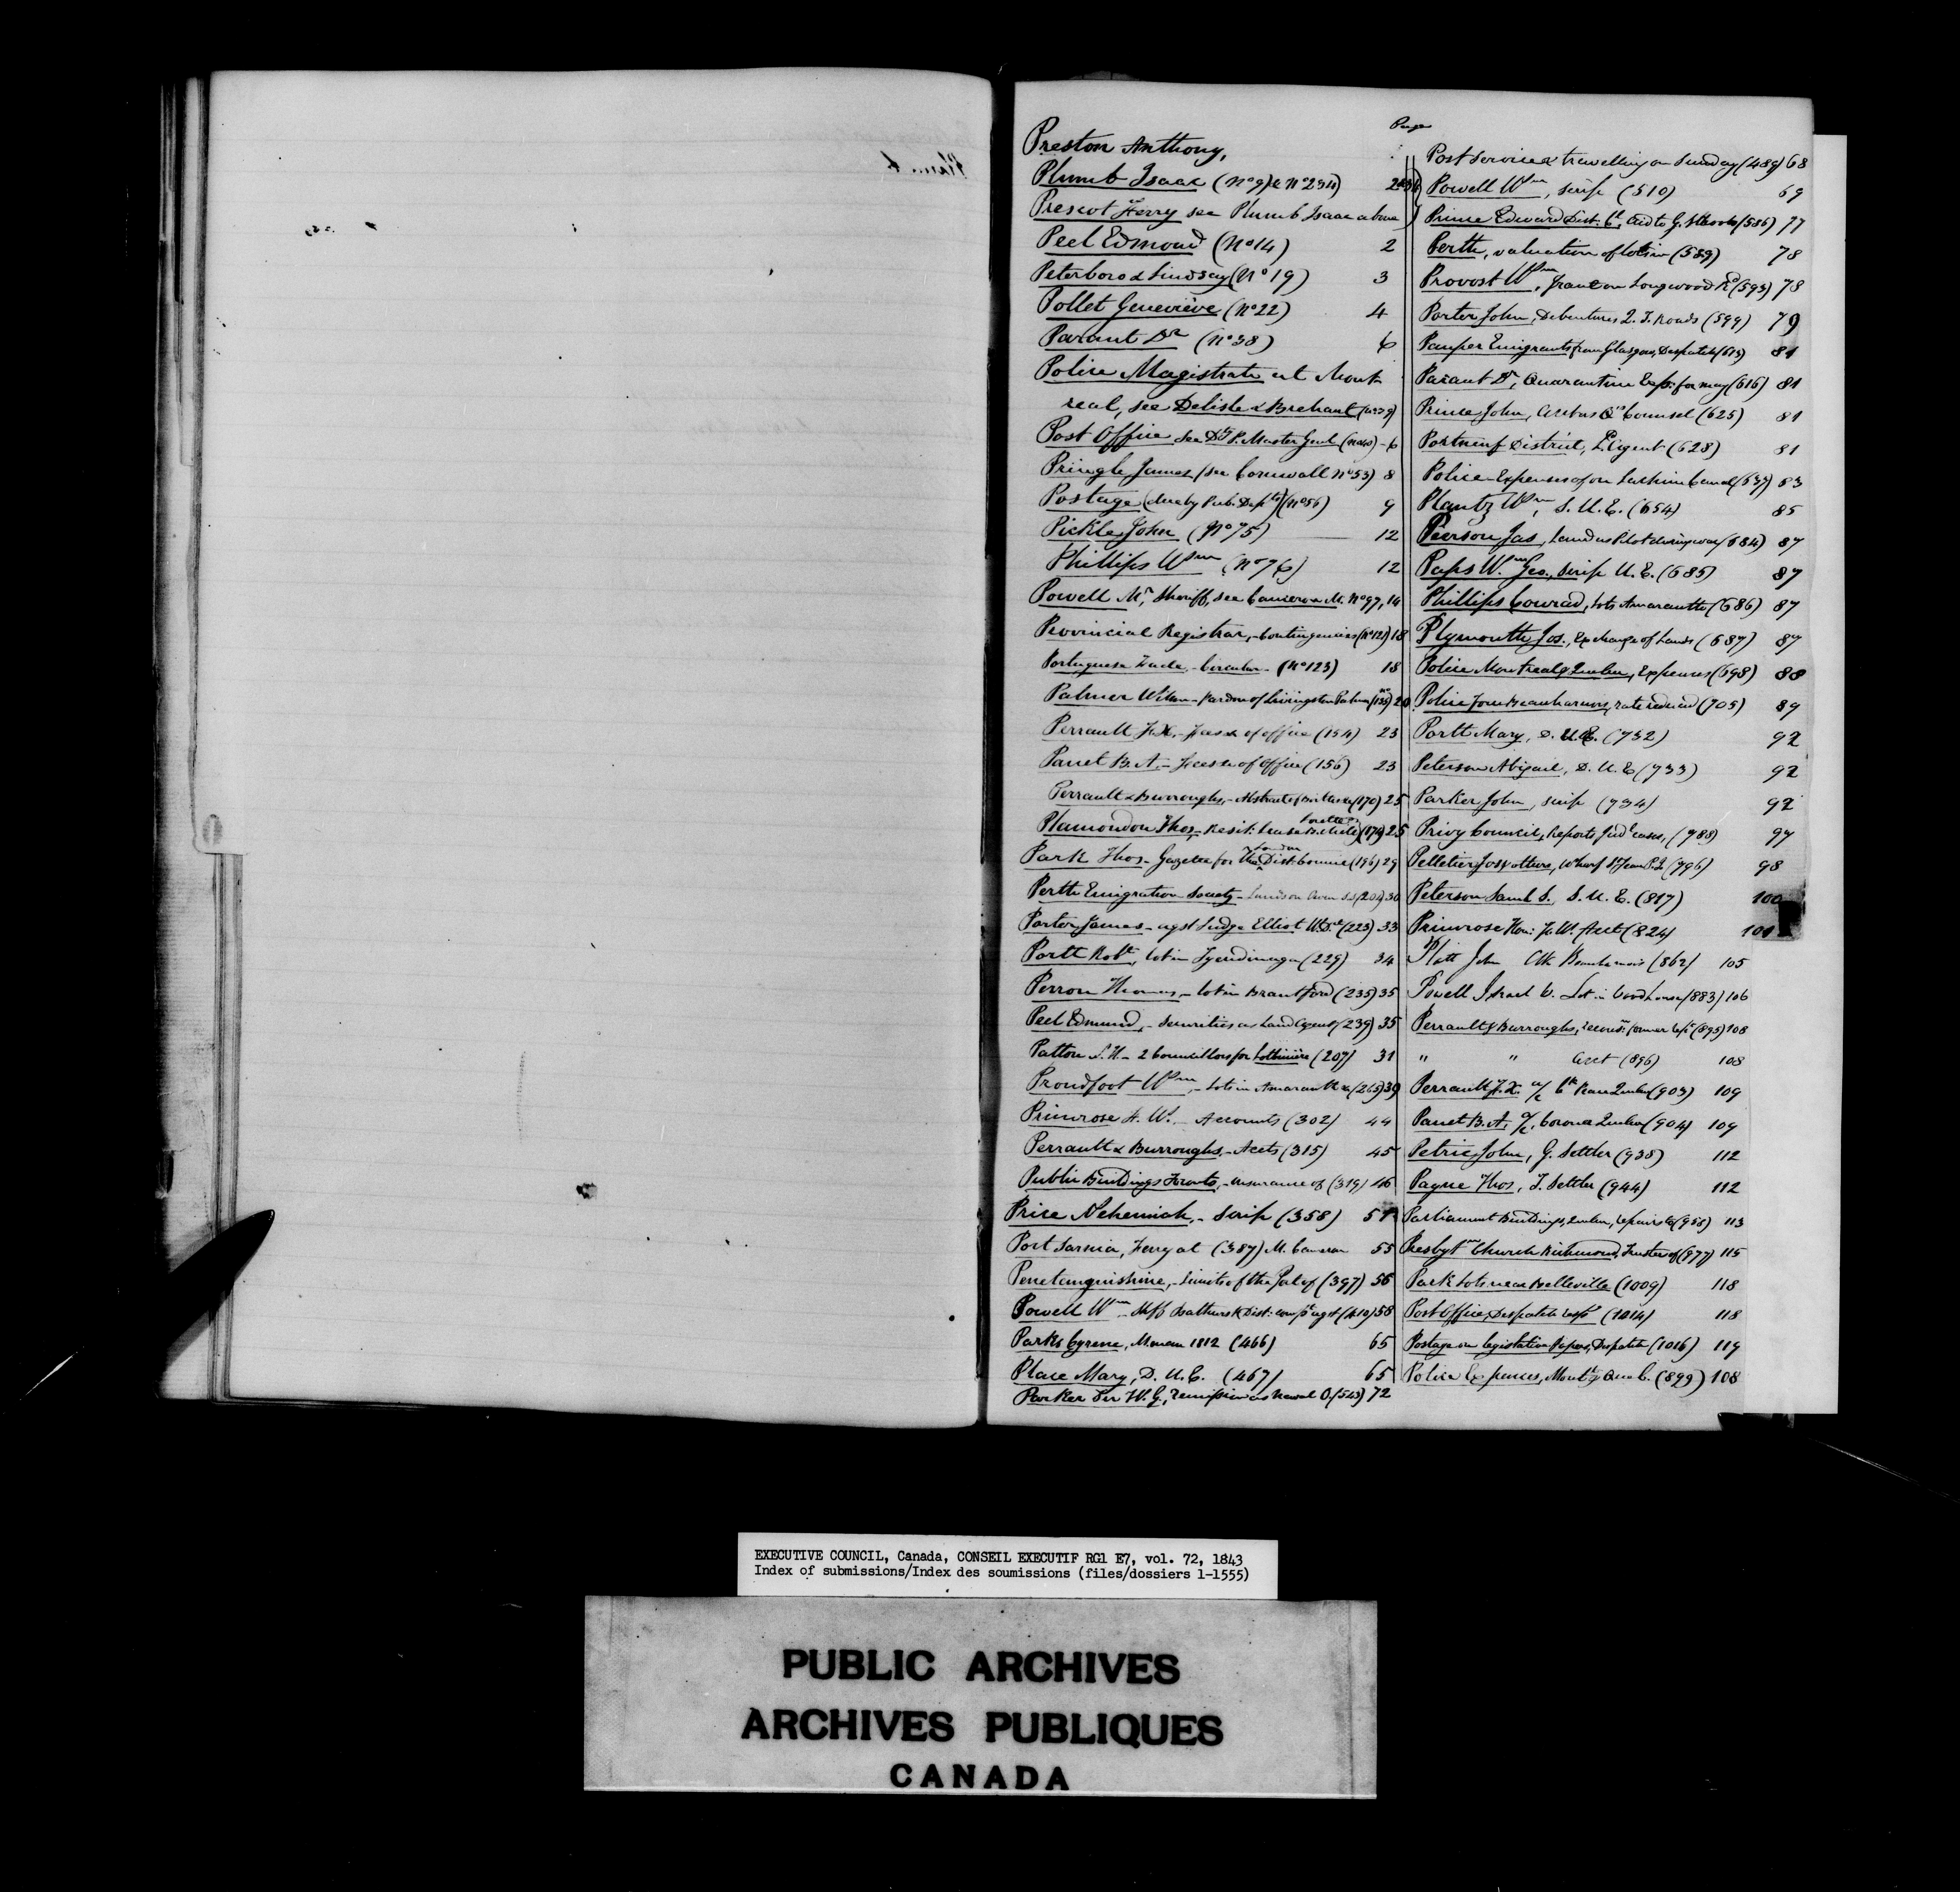 Page
Preston Anthony,
Plumb Isaac (No 9) & No 234)
Prescot Ferry see Plumb Isaac above
Peel Edmond (No 14) 2
Peterboro & Lindsay (No 19) 3
Pollet Geneviève (No 22) 4
Parant Dr (No 38) 6
Police Magistrate at Mont
real, see Delisle & Brehaut (No 39)
Post Office see Dy P. Master Genl (No 40) - 6
Pringle James (see Cornwall No 53) 8
Postage (due by Pub. Depts) (No 56) 9
Pickle John (No 75) 12
Phillips Wm (No 76) 12
Powell Mr, Sheriff, see Cameron M. No 97, 14
Provincial Registrar, - Contingencies (No 121) 18
Portuguese Trade, - Circular - (No 123) 18
Palmer Wilson - Pardon of Livingston Palmer (135) 20
Perrault J. X. - Fees &c of office (154) 23
Panet B. A. - Fees &c of Office (156) 23
Perrault & Burroughs, - Abstract of (170) 25
Plamondon Thos, - Lease (174) 25
Park Thos - Gazetee for the London Dist. (196) 29
Perth Emigration Society - Land on Owen Sd (202) 30
Porter James - agst Judge Elliot (223) 33
Portt Robt, lot in Tyendinaga (229) 34
Perron Thomas, - lot in Brantford (235) 35
Peel Edmund, - Securities as Land Agent (239) 35
Patton - 2 Councillors for Lotbinière (207) 31
Proudfoot Wm, - Lots in Amaranth &c (265) 39
Primrose F. W. - Accounts (302) 44
Perrault & Burroughs, - Accts (315) 45
Public Buildings Toronto, - Insurance of (319) 46
Price Nehemiah, - Scrip (358) 51
Port Sarnia, Ferry at (387) M. Cameron 55
Penetanguishine, - Limits of the Port of (397) 56
Powell Wm - Shff Bathurst Dist: compt agst (410) 58
Parks Cyrene, M. man 1812 (466) 65
Place Mary, D. U. E. (467) 65
Parker Sir W. G., remission as Naval O. (543) 72
Post Services travelling on Sunday (489) 68
Powell Wm, Scrip (510) 69
Prince Edward Dist. Ct, aid to G. Schools (586) 77
Perth, valuation of lots in (589) 78
Provost Wm, Grant on Longwood Rd (593) 78
Porter John, Debentures Q. T. Roads (599) 79
Pauper Emigrants from Glasgow, Despatch (613) 81
Parant Dr, Quarantine Exps: for May (616) 81
Prince John, Arrears Qns Counsel (625) 81
Portneuf District, L. Agent (628) 81
Police - Expenses of on Lachine Canal (637) 83
Plantz Wm, S. U. E. (654) 85
Peerson Jas, Land as Pilot during war (684) 87
Paps Wm Geo., Scrip U. E. (685) 87
Phillips Conrad, lots Amaranth (686) 87
Plymouth Jos., Exchange of Lands (687) 87
Police Montreal & Quebec, Expenses (698) 88
Police force Beauharnois, rate reduced (705) 89
Portt Mary, D. U. E. (732) 92
Peterson Abigail, D. U. E (733) 92
Parker John, Scrip (734) 92
Privy Council, Reports Judl cases, (788) 97
Pelletier Jos & others, Wharf St Jean P. J. (796) 98
Peterson Saml S., S. U. E. (817) 100
Primrose Hon: F. W. Acct (824) 101
Platt John Clk Beauharnois (862) 105
Powell Israel W. Lot in Woodhouse (883) 106
Perrault & Burroughs, former (895) 108
" " Acct (896) 108
Perrault J. X. a/c Ct Peace Quebec (903) 109
Panet B. A. a/c, Coroner Quebec (904) 109
Petrie John, G. Settler (938) 112
Payne Thos, T. Settler (944) 112
Parliament Buildings, Quebec, repairs to (958) 113
Presbytn Church Richmond, Trustees of (977) 115
Park Lots near Belleville (1009) 118
Post Office, Despatch (1014) 118
Postage on legislative Papers, Despatch (1016) 119
Police Expenses, Montl & Queb. (899) 108
EXECUTIVE COUNCIL, Canada, CONSEIL EXECUTIF RG1 E7, vol. 72, 1843
Index of submissions/Index des soumissions (files/dossiers 1-1555)
PUBLIC ARCHIVES
ARCHIVES PUBLIQUES
CANADA